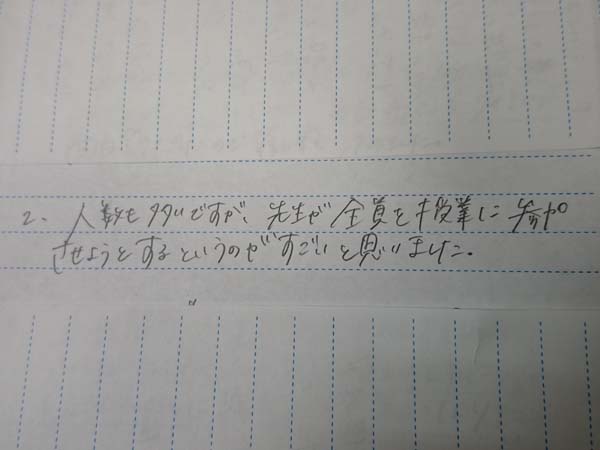 2. 人数も多いですが、先生が全員を授業に参加
させようとするというのがすごいと思いました。